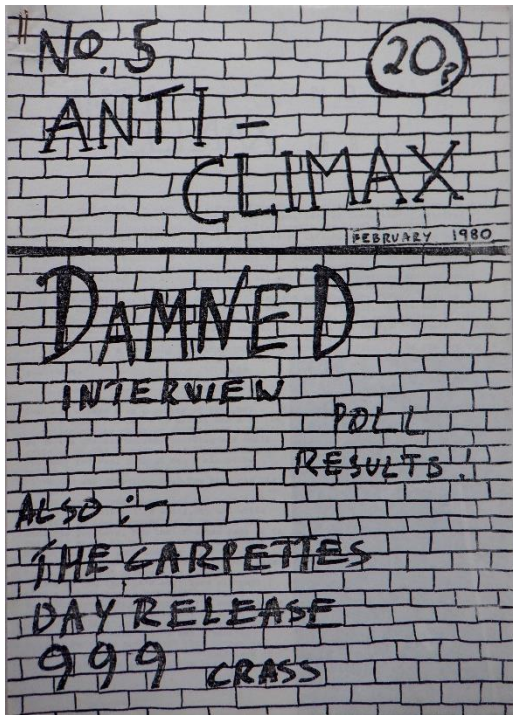 No. 5
20p
ANTI -
CLIMAX
FEBRUARY 1980
DAMNED
INTERVIEW
POLL
RESULTS!
ALSO :-
THE CARPETTES
DAY RELEASE
999
CRASS